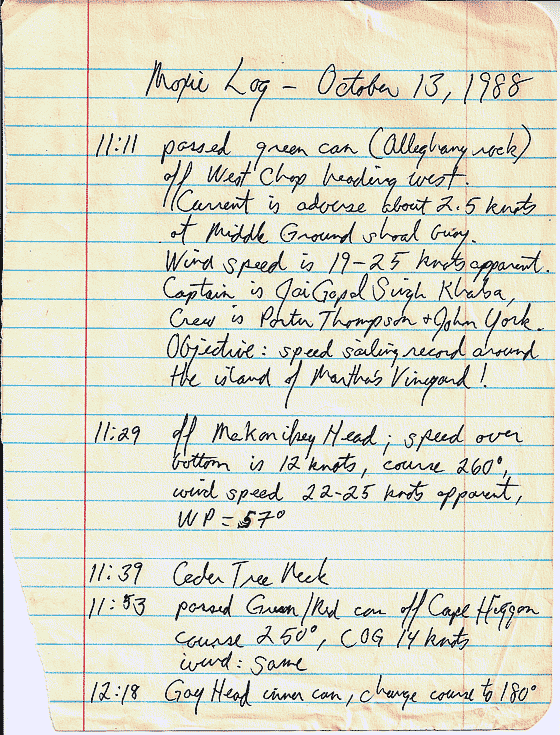 Moxie Log – October 13, 1988
11:11 passed green can (Alleghany rock)
off West Chop heading west.
Current is adverse about 2.5 knots
at Middle Ground shoal buoy.
Wind speed is 19–25 knots apparent.
Captain is Jai Gopal Singh Khalsa,
Crew is Porter Thompson + John York.
Objective: speed sailing record around
the island of Martha's Vineyard!
11:29 off Makonikey Head; speed over
bottom is 12 knots, course 260°,
wind speed 22-25 knots apparent,
WP = 57°
11:39 Cedar Tree Neck
11:53 passed Green/Red can off Cape Higgon
course 250°, COG 14 knots
wind: same
12:18 Gay Head inner can, change course to 180°